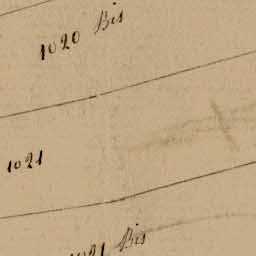 1020 Bis
1021
1021 Bis